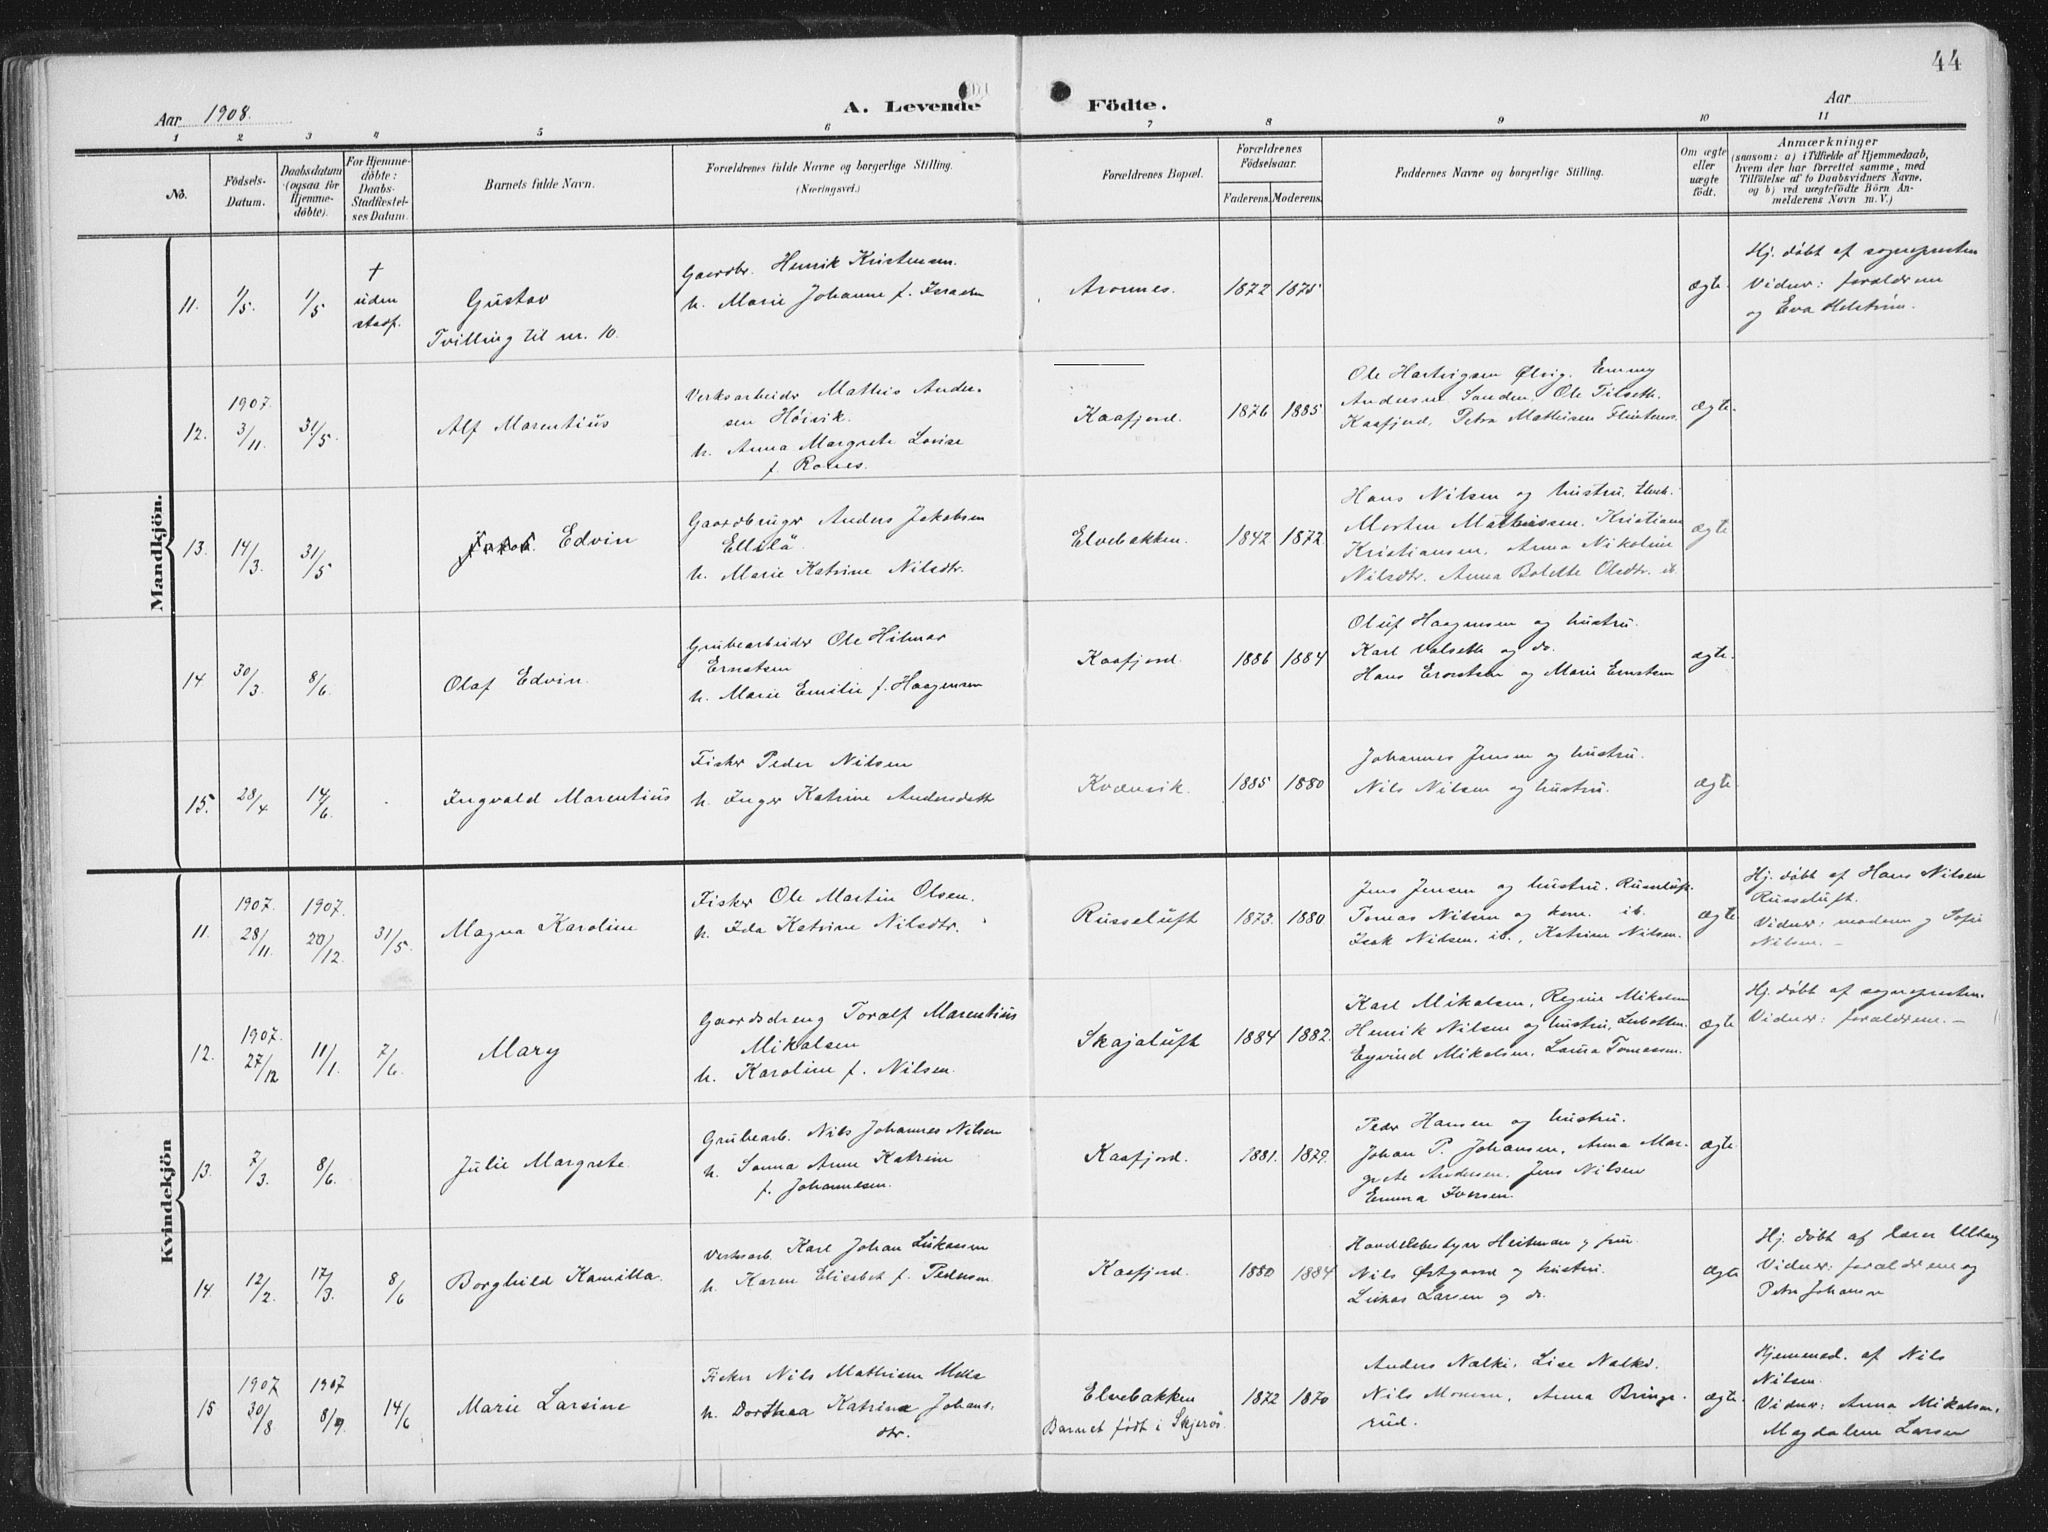 44
Aar 1908.
A. Levende Födte.
Aar
1 2 3 4 5 6 7 8 9 10 11
No.
Födsels-
Datum.
Daabsdatum
(ogsaa for
Hjemme-
döbte).
For Hjemme-
döbte:
Daabs-
Stadfæstel-
ses Datum.
Barnets fulde Navn.
Forældrenes fulde Navne og borgerlige Stilling.
(Næringsvei.)
Forældrenes Bopæl.
Forældrenes
Födselsaar.
Faderens. Moderens.
Faddernes Navne og borgerlige Stilling.
Om ægte
eller
uægte
födt.
Anmærkninger
(saasom: a) i Tilfælde af Hjemmedaab,
hvem der har forrettet samme, med
Tilföielse af to Daabsvidners Navne,
og b) ved uægtefödte Börn An-
melderens Navn m. V.)
Mandkjön.
11. 1/5. 1/5
+
uden
stadf.
Gustav
Tvilling til nr. 10.
Gaardbr. Henrik Kristensen.
h. Marie Johanne f.
Aronnes. 1872 1875
ægte.
Hj. døbt af sognepresten
Vidner: forældrene
og Eva Helström.
12. 1907. 3/11. 31/5.
Alf Marentius
Verksarbeider Mathis Ander-
sen Höivik.
h. Anna Margrete Lovise
f. Rones.
Kaafjord. 1876 1885.
Ole Hartvigsen Ølvig. Emmy
Andersen Sanden, Ole Tilseth.
Kaafjord, Petra Mathisen
ægte.
13. 14/3. 31/5
Jakob. Edvin
Gaardbruger Anders Jakobsen
Ellilä
h. Marie Katrine Nilsdtr.
Elvebakken. 1842 1872.
Hans Nilsen og hustru,
Morten Mathissen. Kristiane
Kristiansen, Anna Nikoline
Nilsdtr. Anna Bolette Olsdtr. ib.
ægte
14. 30/3. 8/6.
Olaf Edvin.
Grubearbeider Ole Hilmar
Ernstsen
h. Marie Emilie f. Haagensen
Kaafjord. 1886 1884
Oluf Haagensen og hustru.
Karl Valsette og do.
Hans Ernstsen og Marie Ernstsen
ægte.
15. 28/4 14/6.
Ingvald Marentius
Fisker Peder Nilsen
h. Inger Katrine Andersdatter
Kvænvik. 1885 1880
Johannes Jensen og hustru.
Nils Nilsen og hustru.
ægte.
Kvindekjön
11. 1907. 28/11. 1907. 20/12. 31/5.
Magna Karoline
Fisker Ole Martin Olsen.
h. Ida Katrine Nilsdtr.
Russeluft 1873. 1880
Jens Jensen og hustru. Russeluft.
Tomas Nilsen og kone ib.
Isak Nilsen. ib., Katrine Nilsen.
ægte
Hj. døbt af Hans Nilsen
Russeluft.
Vidner: moderen og Sofie
Nilsen. –
12. 1907. 27/12 11/1. 7/6.
Mary
Gaardsdreng Toralf Marentius
Mikalsen
h. Karoline f. Nilsen.
Skajaluft 1884 1882.
Karl Mikalsen, Regine Mikalsen
Henrik Nilsen og hustru,
Eyvind Mikalsen, Laura Tomassen.
ægte
Hj. døbt af sognepresten.
Vidner: forældrene. –
13. 7/3. 8/6.
Julie Margrete.
Grubearb. Nils Johannes Nilsen
h. Sanna Anne Katrine
f. Johannesen.
Kaafjord. 1881. 1879.
Peder Hansen og hustru.
Johan P. Johansen, Anna Mar-
grete Andersen, Jens Nilsen
Emma Iversen.
ægte
14. 12/2. 17/3. 8/6
Borghild Kamilla.
Verksarb Karl Johan Lukassen
h. Karen Elisabet f. Pedersen
Kaafjord. 1880 1884
Handelsbestyrer Heitman og frue
Nils Østgaard og hustru.
Lukas Larsen og do.
ægte
Hj. døbt af lærer
Vidner: forældrene og
Petra Johansen
15 1907 30/8 1907 8/9. 14/6
Marie Larsine
Fisker Nils Mathisen
h. Dorthea Katrine Johans-
dtr.
Elvebakken
Barnet født i Skjervø.
1872 1870
Anders Nalki. Lise Nalki.
Nils Monsen, Anna Bringe-
rud.
ægte.
Hjemmed. af Nils
Nilsen.
Vidner: Anna Mikalsen,
Magdalene Larsen